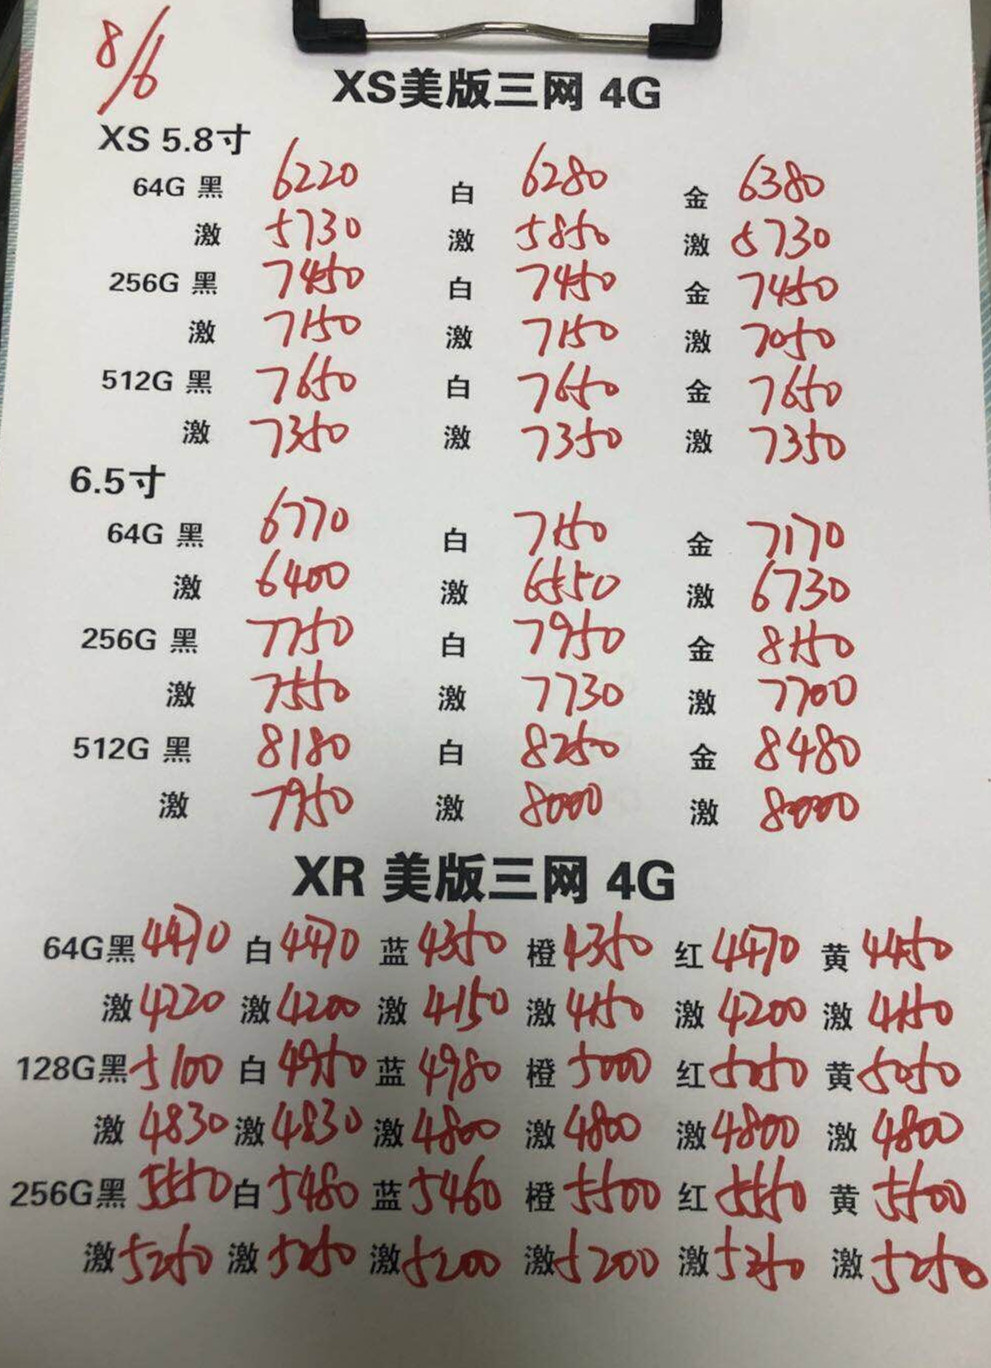 8/6
XS美版三网 4G
XS 5.8寸
64G 黑 6220 白 6280 金 6380
激 5730 激 5850 激 5730
256G 黑 7450 白 7450 金 7450
激 7150 激 7150 激 7050
512G 黑 7650 白 7650 金 7650
激 7350 激 7350 激 7350
6.5寸
64G 黑 6770 白 7150 金 7170
激 6400 激 6550 激 6730
256G 黑 7750 白 7950 金 8150
激 7550 激 7730 激 7700
512G 黑 8180 白 8250 金 8480
激 7950 激 8000 激 8000
XR 美版三网 4G
64G黑 4470 白 4470 蓝 4350 橙 4350 红 4470 黄 4450
激 4220 激 4200 激 4150 激 4150 激 4200 激 4150
128G黑 5100 白 4950 蓝 4980 橙 5000 红 5050 黄 5050
激 4830 激 4830 激 4800 激 4800 激 4800 激 4800
256G黑 5550 白 5480 蓝 5460 橙 5500 红 5550 黄 5500
激 5250 激 5250 激 5200 激 5200 激 5250 激 5250